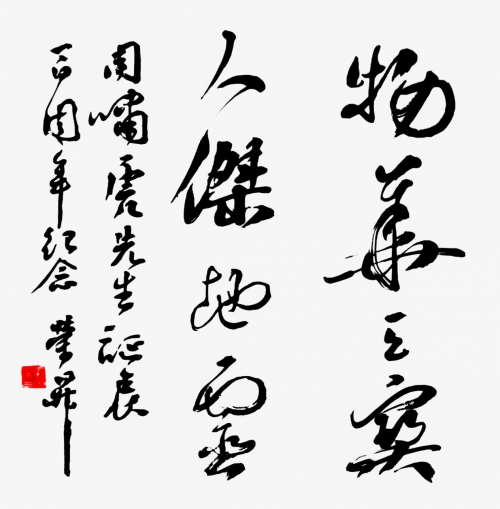 物華天寶
人傑地靈
周嘯虎先生誕辰
百周年紀念 榮